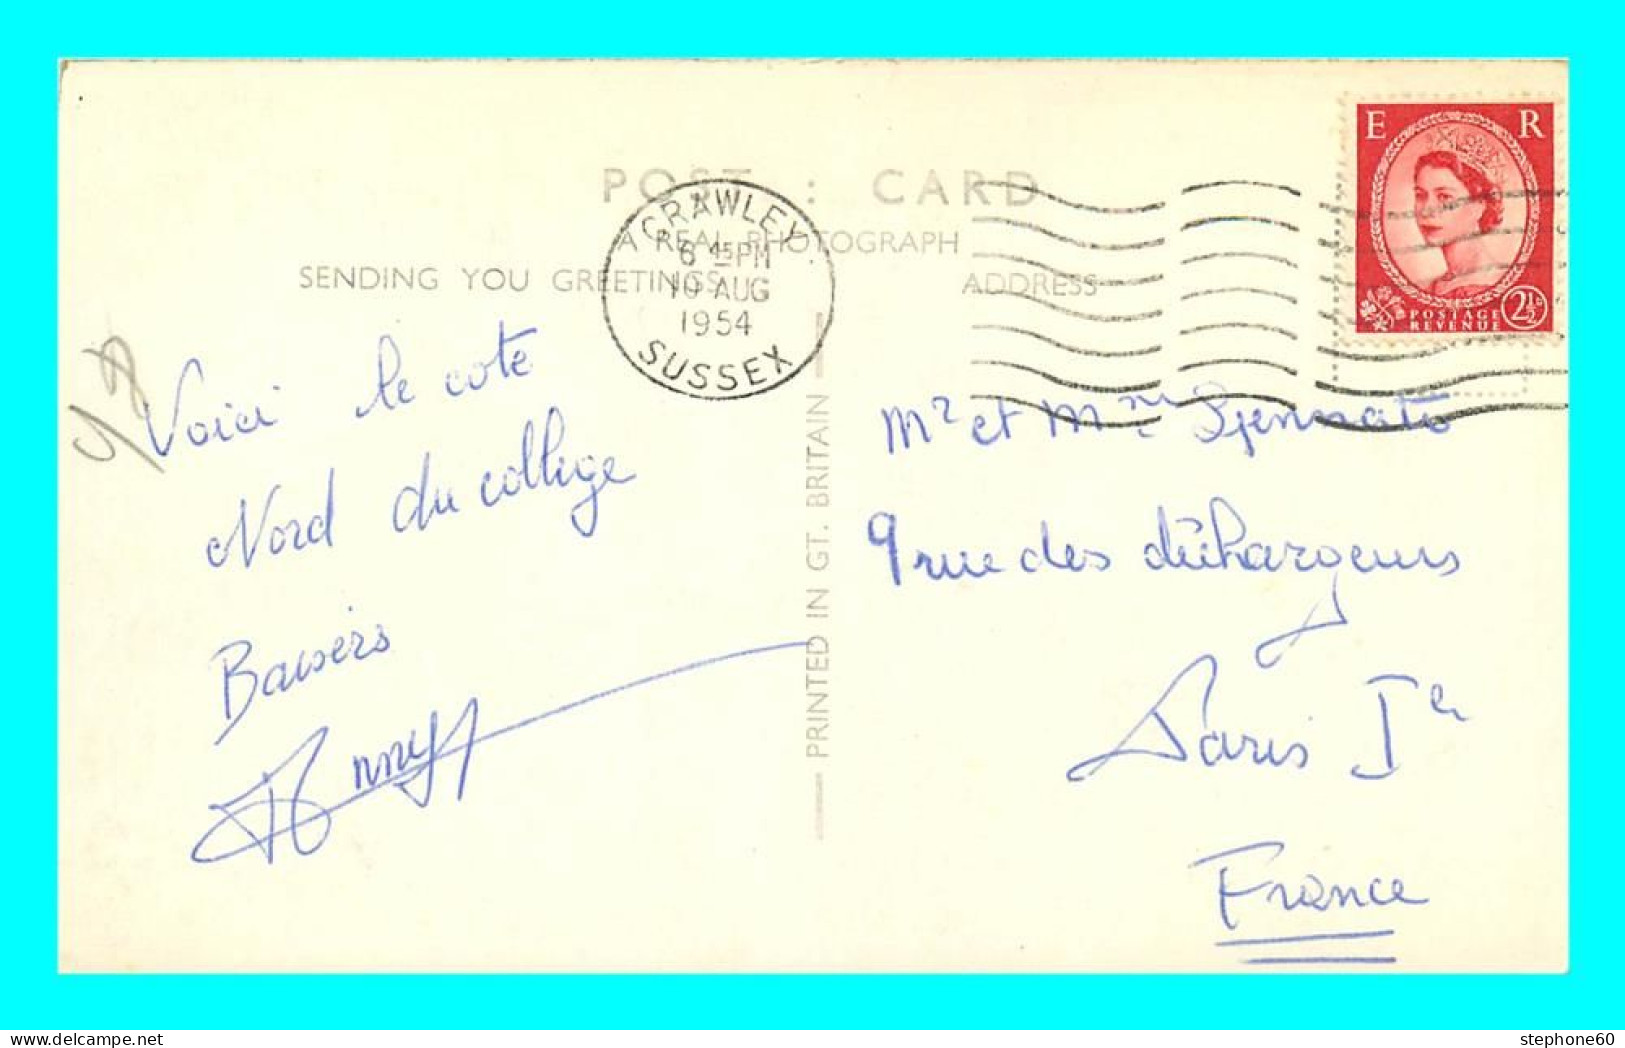 POST : CARD
A REAL PHOTOGRAPH
SENDING YOU GREETINGS
ADDRESS
CRAWLEY
6 45 PM
10 AUG
1954
SUSSEX
E R
POSTAGE
REVENUE
2½D
Voici le cote
Nord du collège
Baisers
Anny
PRINTED IN GT. BRITAIN
Mr et Mme
9 rue des déchargeurs
Paris Ier
France
stephone60